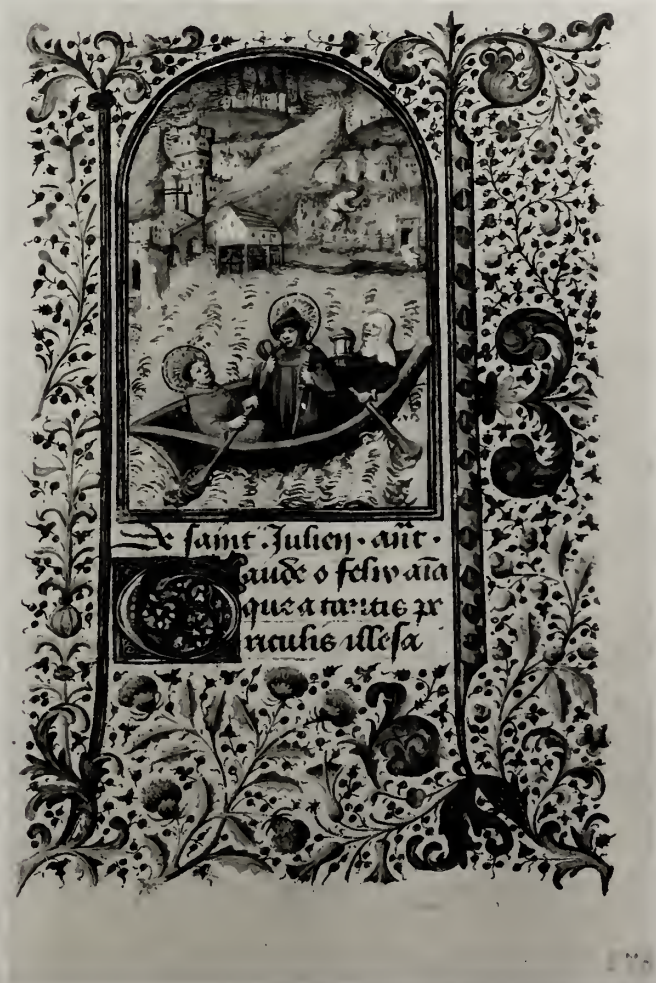 De saint Julien · añt ·
Gaude o felix aīa
que a tantis pe
riculis illesa